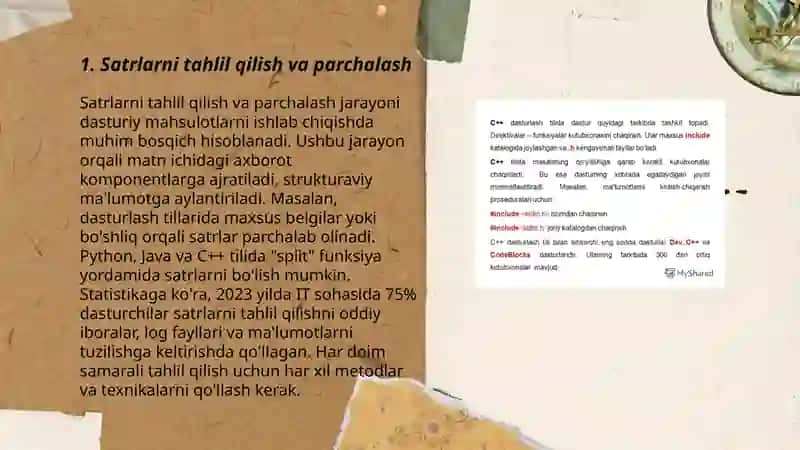 1. Satrlarni tahlil qilish va parchalash
Satrlarni tahlil qilish va parchalash jarayoni
dasturiy mahsulotlarni ishlab chiqishda
muhim bosqich hisoblanadi. Ushbu jarayon
orqali matn ichidagi axborot
komponentlarga ajratiladi, strukturaviy
ma'lumotga aylantiriladi. Masalan,
dasturlash tillarida maxsus belgilar yoki
bo'shliq orqali satrlar parchalab olinadi.
Python, Java va C++ tilida "split" funksiya
yordamida satrlarni bo'lish mumkin.
Statistikaga ko'ra, 2023 yilda IT sohasida 75%
dasturchilar satrlarni tahlil qilishni oddiy
iboralar, log fayllari va ma'lumotlarni
tuzilishga keltirishda qo'llagan. Har doim
samarali tahlil qilish uchun har xil metodlar
va texnikalarni qo'llash kerak.
C++ dasturlash tilida dastur quyidagi tarkibida tashkil topadi.
Direktivalar – funksiyalar kutubxonasini chaqirish. Ular maxsus include
katalogida joylashgan va .h kengaytmali fayllar bo'ladi.
C++ tilida masalaning qo'yilishiga qarab kerakli kutubxonalar
chaqiriladi. Bu esa dasturning xotirada egallaydigan joyini
minimallashtiradi. Masalan, ma'lumotlarni kiritish-chiqarish
proseduralari uchun:
#include tizimdan chaqirish
#include joriy katalogdan chaqirish.
C++ dasturlash tili bilan ishlovchi eng sodda dasturlar Dev C++ va
CodeBlocks dasturlaridir. Ularning tarkibida 300 dan ortiq
kutubxonalar mavjud.
MyShared